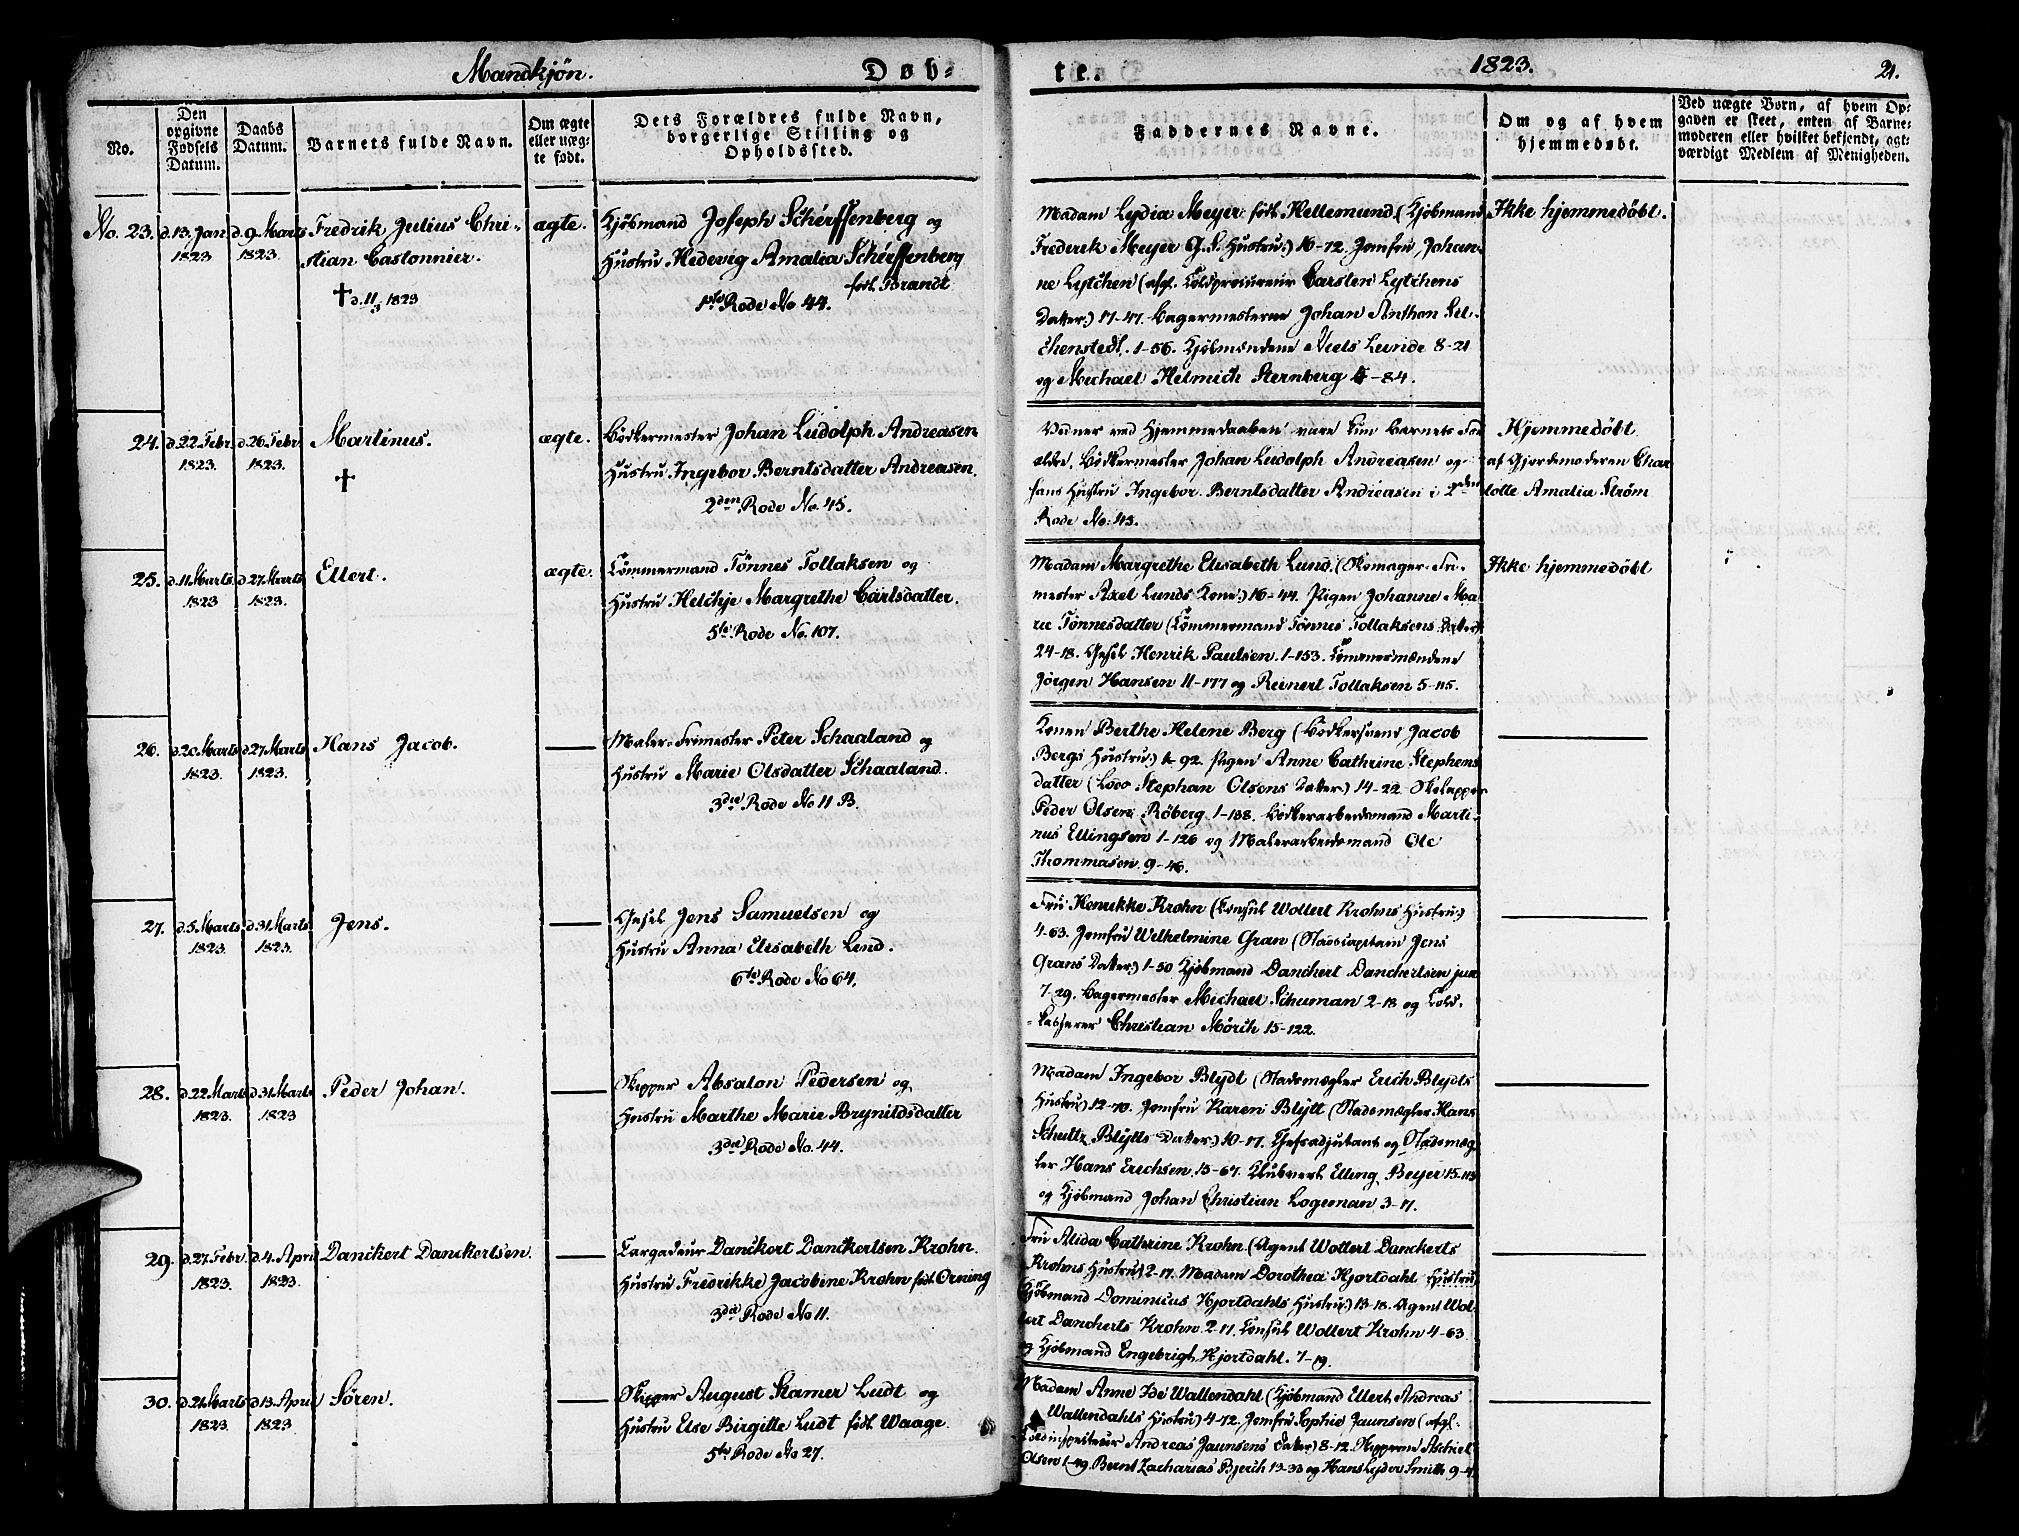 Mandkjøn.
Døb-
te.
1823.
21.
No.
Den opgivne Fødsels Datum.
Daabs Datum.
Barnets fulde Navn.
Om ægte eller uægte født.
Dets Forældres fulde Navn,
borgerlige Stilling og
Opholdssted.
Faddernes Navne.
Om og af hvem
hjemmedøbt.
Ved uægte Børn, af hvem Op-
gaven er skeet, enten af Barne-
moderen eller hvilket bekjendt, agt-
værdigt Medlem af Menigheden.
No. 23. d. 13. Jan. 1823 d. 9. Marts 1823.
Fredrik Julius Chri-
stian Castonnier.
† d. 11/3 1823
ægte.
Kjøbmand Joseph Schérffenberg og
Hustru Hedevig Amalia Schérffenberg
fød. Brandt
1ste Rode No. 44.
Madam Lydia Meyer født Hellemund (Kjøbmand
Frederik Meyer G. S. Hustru) 16-72. Jomfru Johan-
ne Lytchen (afgl. Toldprocureur Carsten Lytchens
Datter) 17-47. Bagermesterne Johan Anthon
1-56. Kjøbmændene Niels Lunde 8-21
og Michael Helmich Sternberg 5-84.
Ikke hjemmedøbt.
24. d. 22. Febr. 1823. d. 26. Febr. 1823.
Martinus.
†
ægte.
Bødkermester Johan Ludolph Andreasen
Hustru Ingebor Berntsdatter Andreasen.
2den Rode No. 45.
Vidner ved Hjemmedaaben vare kun Barnets For-
ældre, Bødkermester Johan Ludolph Andreasen og
hans Hustru Ingebor Berntsdatter Andreasen i 2den
Rode No. 45.
Hjemmedøbt
af Gjordemoderen Char
lotte Amalia Strøm
25. d. 11. Marts 1823 d. 27. Marts 1823.
Ellert.
ægte.
Tømmermand Tönnes Tollaksen og
Hustru Helchje Margrethe Carlsdatter.
5te Rode No. 107.
Madam Margrethe Elisabeth Lund (Skomager-Fri-
mester Axel Lunds Kone) 16-44. Pigen Johanne Ma
rie Tönnesdatter (Tømmermand Tönnes Tollaksens Datter)
24-18. Gesel Henrik Paulsen. 1-153. Tømmermændene
Jørgen Hansen 11-177 og Reinert Tollaksen 5-115.
Ikke hjemmedøbt
26. d. 20. Marts 1823. d. 27. Marts 1823.
Hans Jacob.
Maler-Frimester Peter Schaaland og
Hustru Marie Olsdatter Schaaland.
3die Rode No 11 B.
Konen Berthe Helene Berg (Bødkersvend Jacob
Bergs Hustru) 92. Pigen Anne Cathrine Stephens
datter (Lods Stephan Olsens Datter) 14-22.
Peder Olsen Röberg 1-188. Bødkerarbeidsmand Marti-
nus Ellingsen 1-126 og Malerarbeidsmand Ole
Thommasen. 9-46.
27. d. 5. Marts 1823. d. 31. Marts 1823.
Jens.
Gesel Jens Samuelsen og
Hustru Anna Elisabeth Lind.
6te Rode No 64.
Fru Henrikke Krohn (Consul Wollert Krohns Hustru)
4-63. Jomfru Wilhelmine Gran (Stadscapitain Jens
Grans Datter) 1-50 Kjøbmand Danchert Danchertsen jun
7-29. Bagermester Michael Schuman 2-18 og Told-
kasserer Christian Mörch 15-122.
28. d. 22. Marts 1823. d. 31. Marts 1823
Peder Johan.
Skipper Absalon Pedersen og
Hustru Marthe Marie Brynildsdatter
3die Rode No. 44.
Madam Ingebor Blydt (Stadsmægler Erich Blydts
Hustru) 12-70. Jomfru Karen Blÿtt (Stadsmægler Hans
Schultz Blÿtts Datter) 10-17. og Stadsmæg
ler Hans Erichsen. 13-67. Klubvert Elling Beyer 15-113
og Kjøbmand Johan Christian Logeman 3-17.
29. d. 27. Febr. 1823. d. 4. April 1823.
Danckert Danckertsen.
Cargadeur Danckert Danckertsen Krohn.
Hustru Fredrikke Jacobine Krohn født Orning
3die Rode No 11.
Fru Alida Cathrine Krohn (Agent Wollert Danckerts
Krohns Hustru) 2-17. Madam Dorothea Hjortdahl Hustru
Kjøbmand Dominicus Hjortdahls Hustru) 13-18. Agent Wol-
lert Dancherts Krohn 2-17. Consul Wollert Krohn 4-63
og Kjøbmand Engebrigt Hjortdahl. 7-19.
30. d. 21. Marts 1823. d. 13. April 1823
Søren.
Skipper August Stamer Ludt og
Hustru Else Birgitte Ludt født Waage
5te Rode No 27.
Madam Anne Ide Wallendahl (Kjøbmand Ellert Andreas
Wallendahls Hustru) 4-12. Jomfru Sophie Jaunsen (afgl.
Toldinspecteur Andreas Jaunsens Datter) 8-12. Skipperne
Olsen 1-19. Bernt Zacharias Bjerch 13-33 og Hans Lyder Smith 9-4